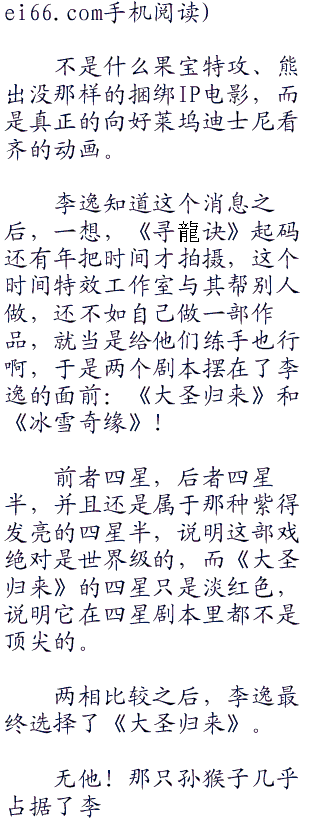 ei66.com手机阅读)
不是什么果宝特攻、熊
出没那样的捆绑IP电影，而
是真正的向好莱坞迪士尼看
齐的动画。
李逸知道这个消息之
后，一想，《寻龍诀》起码
还有年把时间才拍摄，这个
时间特效工作室与其帮别人
做，还不如自己做一部作
品，就当是给他们练手也行
啊，于是两个剧本摆在了李
逸的面前：《大圣归来》和
《冰雪奇缘》！
前者四星，后者四星
半，并且还是属于那种紫得
发亮的四星半，说明这部戏
绝对是世界级的，而《大圣
归来》的四星只是淡红色，
说明它在四星剧本里都不是
顶尖的。
两相比较之后，李逸最
终选择了《大圣归来》。
无他！那只孙猴子几乎
占据了李